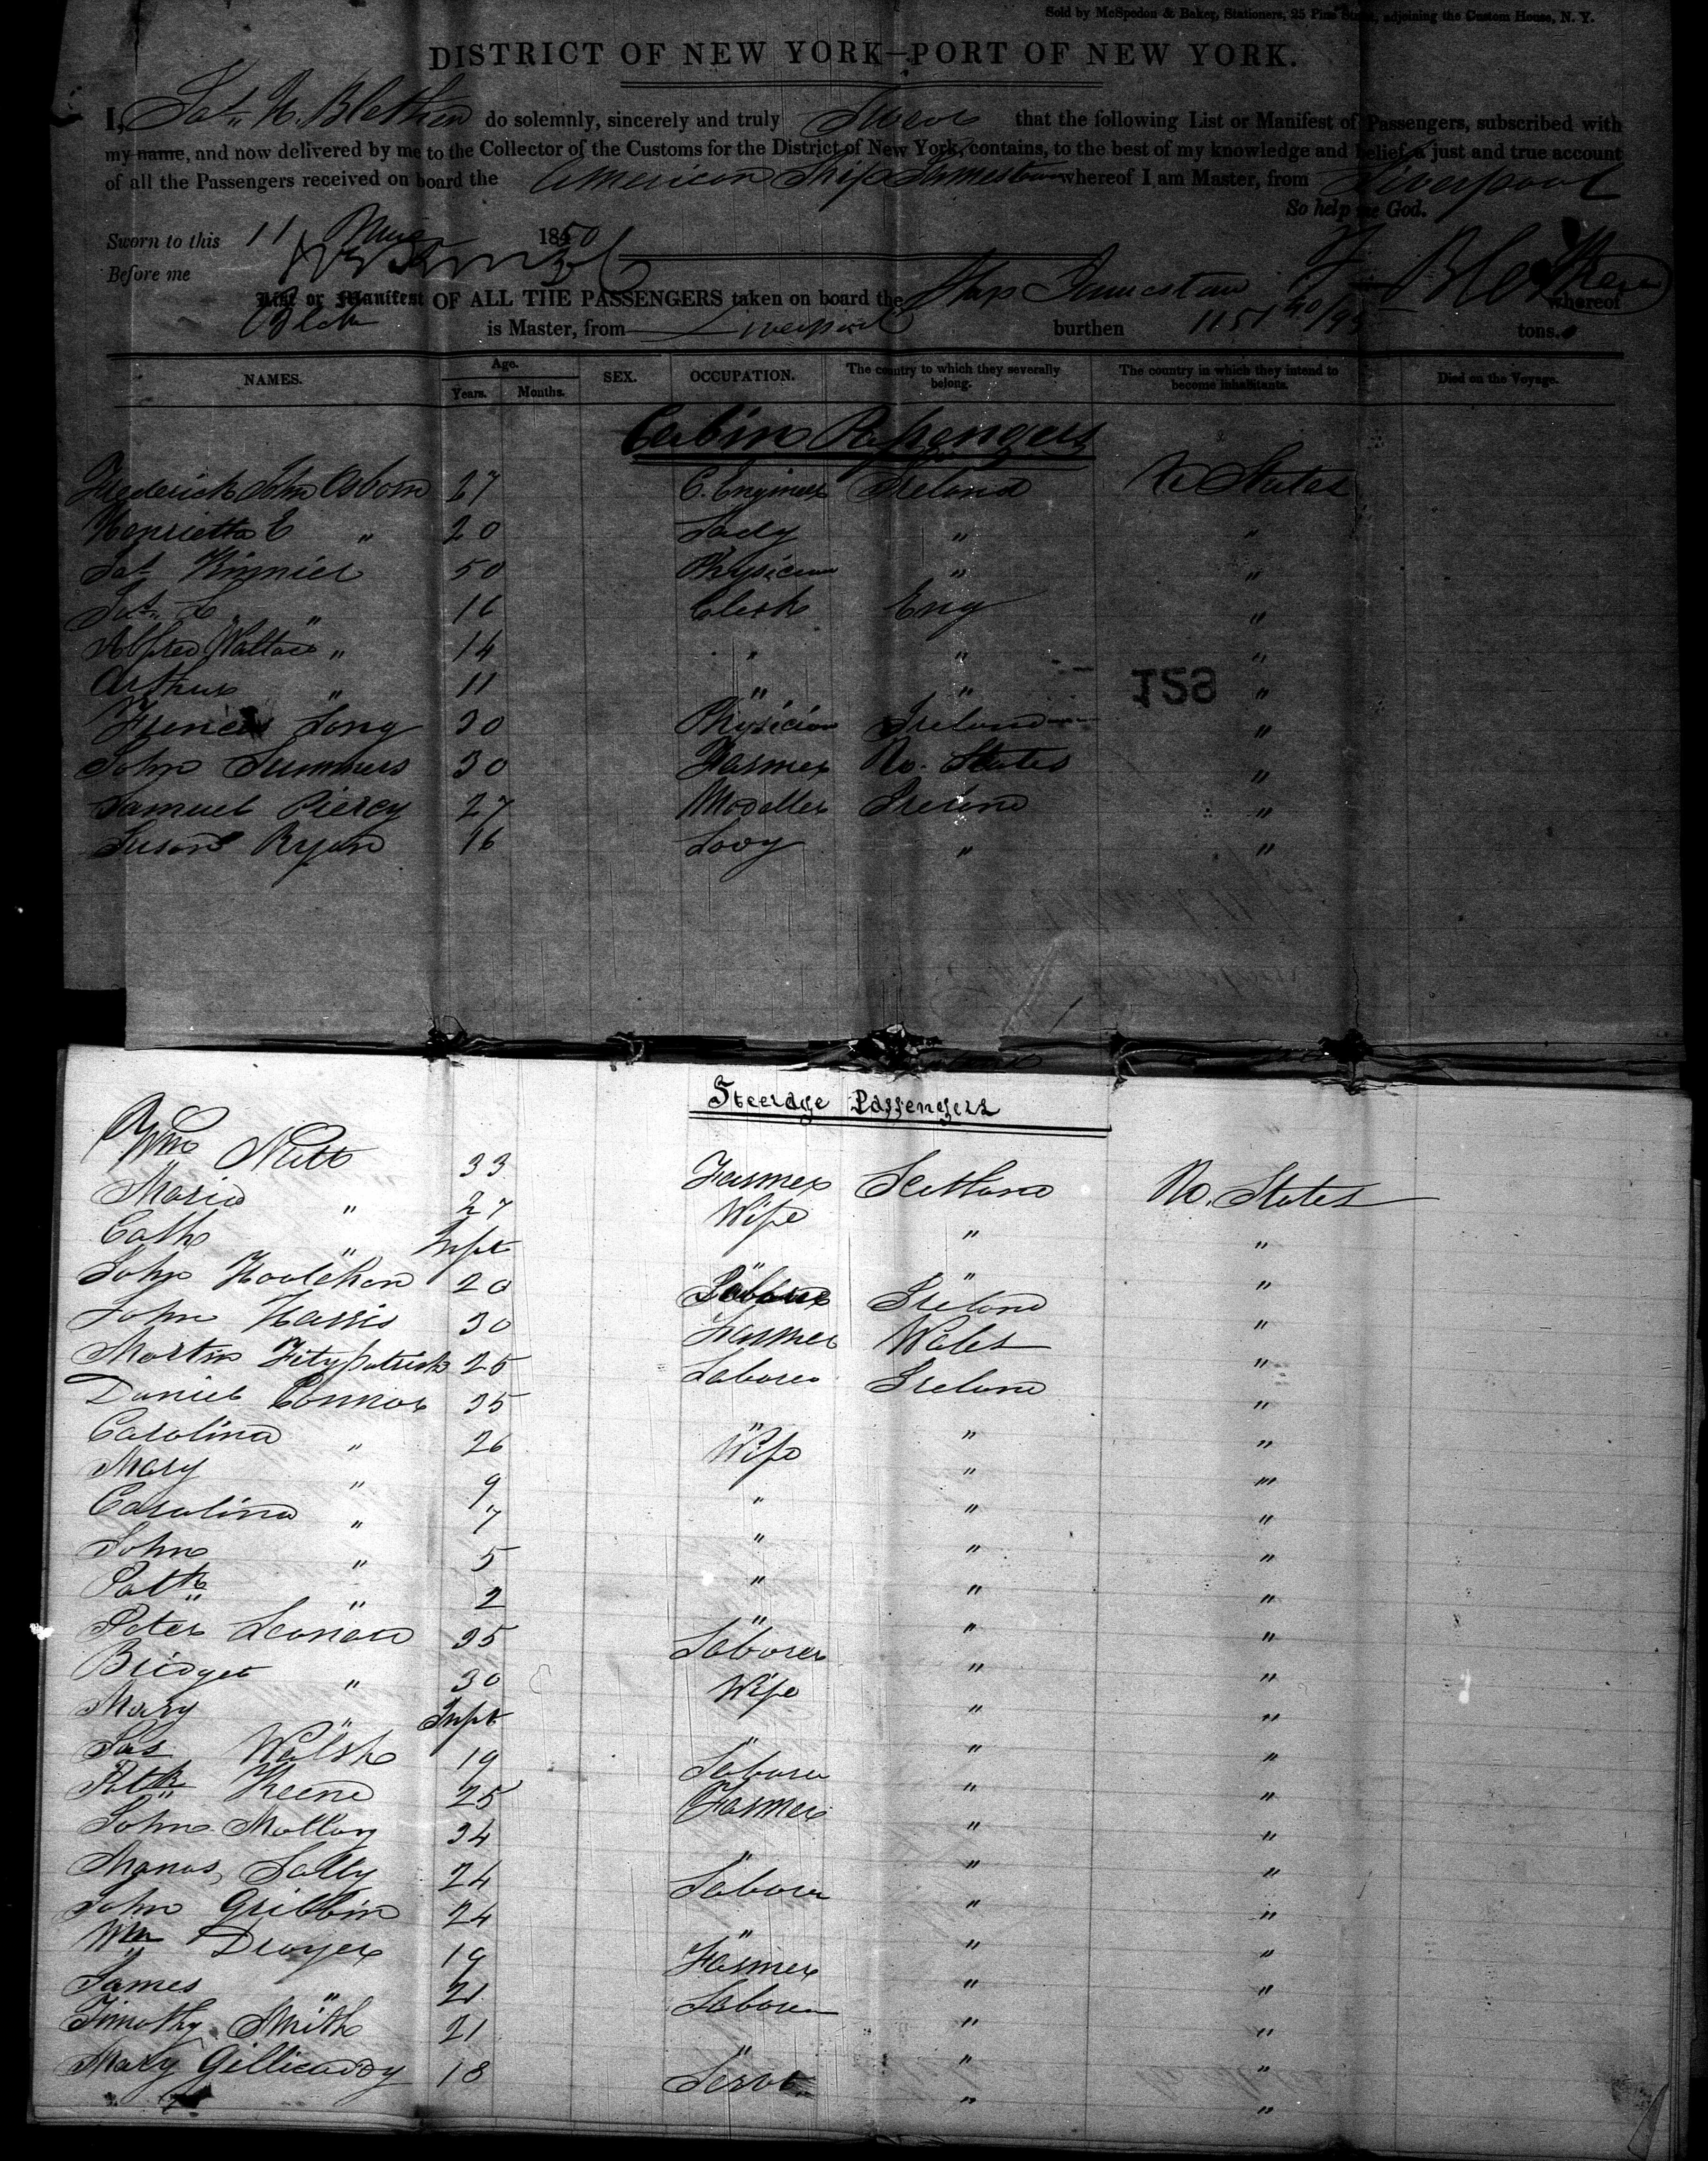 Sold by McSpedon & Baker, Stationers, 25 Pine Street, adjoining the Custom House, N. Y.
DISTRICT OF NEW YORK—PORT OF NEW YORK.
I, Jas. N. Blethen do solemnly, sincerely and truly Swear that the following List or Manifest of Passengers, subscribed with
my name, and now delivered by me to the Collector of the Customs for the District of New York, contains, to the best of my knowledge and belief, a just and true account
of all the Passengers received on board the American Ship Jamestown whereof I am Master, from Liverpool
So help me God.
Sworn to this 11 1850
Before me
List or Manifest OF ALL THE PASSENGERS taken on board the Ship Jamestown whereof
is Master, from Liverpool burthen 1151 40/95 tons.
NAMES. Age. Years. Months. SEX. OCCUPATION. The country to which they severally belong. The country in which they intend to become inhabitants. Died on the Voyage.
Cabin Passengers
Frederick John Osborn 27 C. Engineer Ireland U States
Henrietta E " 20 Lady " "
Jas Kinnier 50 Physician " "
Jas. L " 16 Clerk Eng "
Alfred Wallace " 14 " " "
Arthur " 11 " " "
Francis Long 30 Physician Ireland "
John Summers 30 Farmer U. States "
Samuel Piercy 27 Modeller Ireland "
Susan Ryan 16 Lady " "
158
Steerage Passengers
Wm Nutt 33 Farmer Scotland U. States
Maria " 27 Wife " "
Cath " Inft " " "
John Hoolehan 20 Laborer Ireland "
John Harris 30 Farmer Wales "
Martin Fitzpatrick 25 Laborer Ireland "
Daniel Connor 35 " " "
Carolina " 26 Wife " "
Mary " 9 " " "
Carolina " 7 " " "
John " 5 " " "
Patk " 2 " " "
Peter Leonard 35 Laborer " "
Bridget " 30 Wife " "
Mary " Inft " " "
Jas Walsh 19 Laborer " "
Patk Keend 25 Farmer " "
John Molloy 34 " " "
Manus Lally 24 Laborer " "
John Gribbin 24 " " "
Wm Dwyer 19 Farmer " "
James " 21 Laborer " "
Timothy Smith 21 " " "
Mary Gillicuddy 18 Servt " "